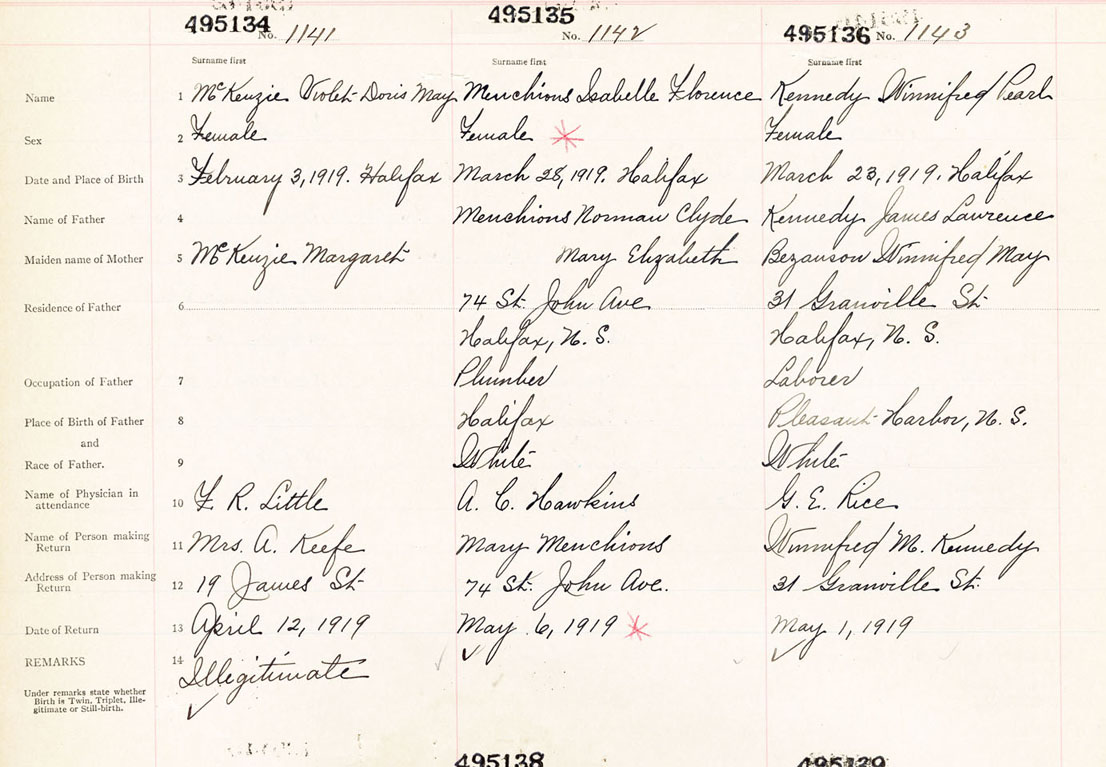 495134 No. 1141 495135 No. 1142 495136 No. 1143
Surname first Surname first Surname first
Name 1 McKenzie Violet Doris May Menchions Isabelle Florence Kennedy Winnifred Pearl
Sex 2 Female Female Female
Date and Place of Birth 3 February 3, 1919. Halifax March 28, 1919. Halifax March 23, 1919. Halifax
Name of Father 4 Menchions Norman Clyde Kennedy James Lawrence
Maiden name of Mother 5 McKenzie Margaret Mary Elizabeth Bezanson Winnifred May
Residence of Father 6 74 St. John Ave 31 Granville St.
Halifax, N. S. Halifax, N. S.
Occupation of Father 7 Plumber Laborer
Place of Birth of Father 8 Halifax Pleasant Harbor, N. S.
and
Race of Father. 9 White White
Name of Physician in
attendance 10 F. R. Little A. C. Hawkins G. E. Rice
Name of Person making
Return 11 Mrs. A. Keefe Mary Menchions Winnifred M. Kennedy
Address of Person making
Return 12 19 James St 74 St. John Ave. 31 Granville St.
Date of Return 13 April 12, 1919 May 6, 1919 May 1, 1919
REMARKS 14 Illegitimate
Under remarks state whether
Birth is Twin, Triplet, Ille-
gitimate or Still-birth.
495138 495139